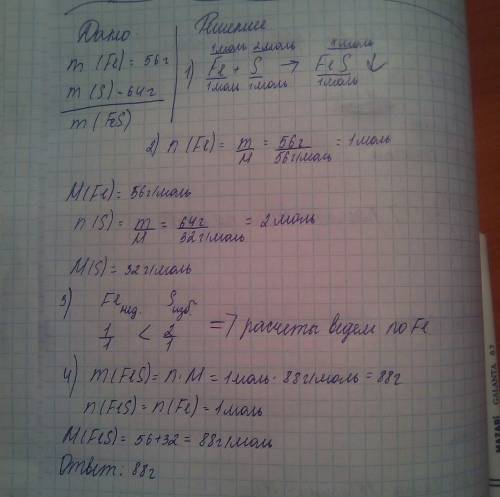 Дано
m (Fe) = 56г
m (S) = 64г
m (FeS)
Решение
1моль 2моль 1моль
1) Fe + S → FeS ↓
1моль 1моль 1моль
2) n (Fe) = m/M = 56г/56г/моль = 1моль
M(Fe) = 56г/моль
n(S) = m/M = 64г/32г/моль = 2моль
M(S) = 32г/моль
3) Fe нед. S изб.
1/1 < 2/1 => расчеты ведем по Fe
4) m(FeS) = n·M = 1моль·88г/моль = 88г
n(FeS) = n(Fe) = 1моль
M(FeS) = 56+32 = 88г/моль
Ответ: 88г